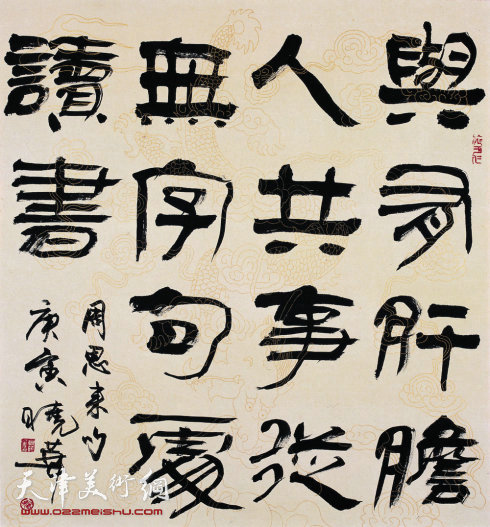 與有肝膽
人共事從
無字句處
讀書
周恩来句
庚寅曉
天津美術網
www.022meishu.com